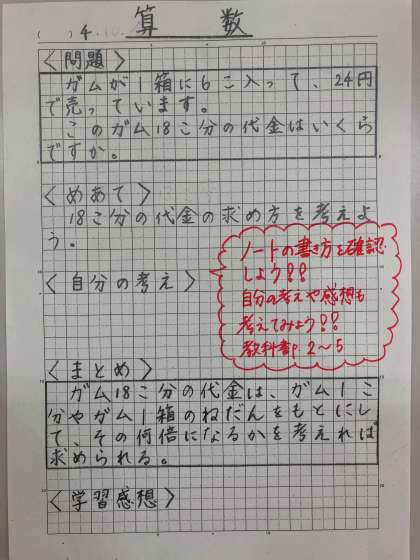 ( )4. 算 数
<問題>
ガムが1箱に6こ入って、24円
で売っています。
このガム18こ分の代金はいくら
ですか。
<めあて>
18こ分の代金の求め方を考えよ
う。
<自分の考え>
ノートの書き方を確認
しよう!!
自分の考えや感想も
考えてみよう!!
教科書P 2~5
<まとめ>
ガム18こ分の代金は、ガム1こ
分やガム1箱のねだんをもとにし
て、その何倍になるかを考えれば
求められる。
<学習感想>